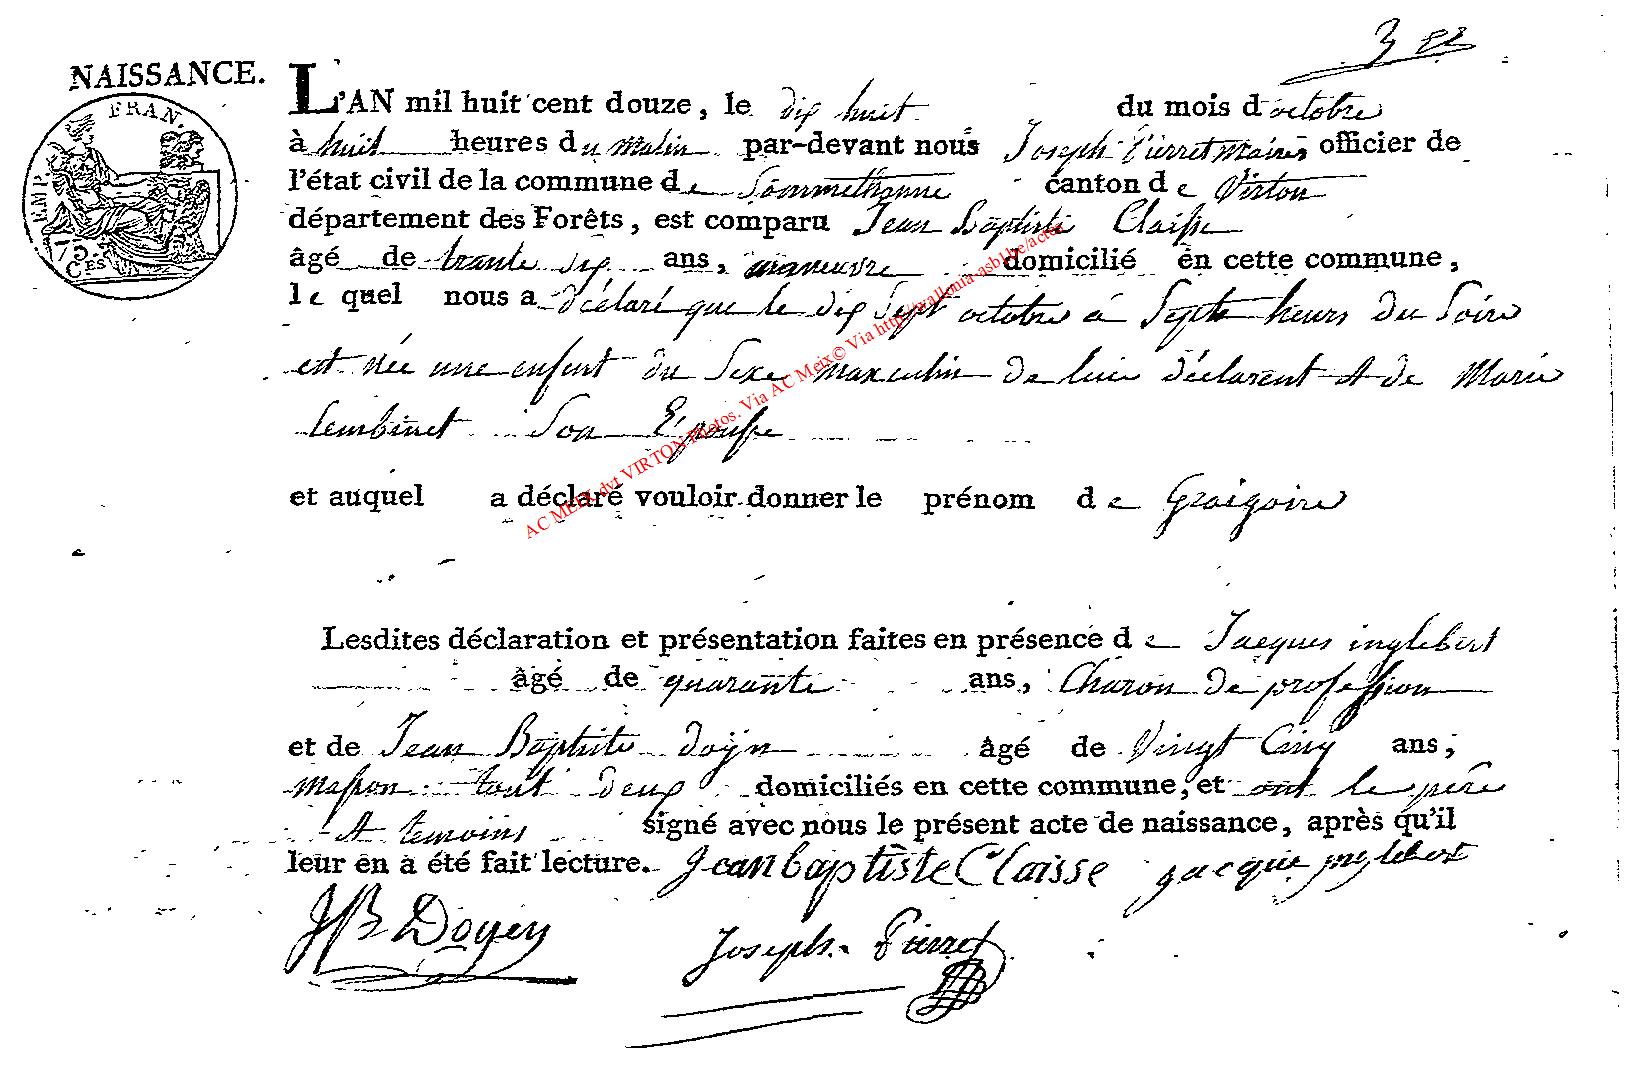 NAISSANCE.
EMP. FRAN.
75 Ces
L'AN mil huit cent douze, le dix huit du mois d'octobre
à huit heures du matin par-devant nous Joseph Pierret maire officier de
l'état civil de la commune de Sommethonne canton de Virton
département des Forêts, est comparu Jean Baptiste Claisse
âgé de trante six ans, maneuvre domicilié en cette commune,
le quel nous a déclaré que le dix sept octobre à Septe heurs du Soire
est née une enfent du Sexe masculin de luie déclarent et de Marie
Lembinet Son Epousse
et auquel a déclaré vouloir donner le prénom de Graigoire
Lesdites déclaration et présentation faites en présence de Jacques inglebert
âgé de quarante ans, Charon de profession
et de Jean Baptiste doyen âgé de Vingt Cinq ans,
masson tout deux domiciliés en cette commune, et ont le père
et temoins signé avec nous le présent acte de naissance, après qu'il
leur en a été fait lecture. Jean baptiste Claisse jacque inglebert
JB Doyen Joseph Pierret
AC MEIX dvt VIRTON Photos. Via AC Meix© Via http://wallonia-asbl.be/actes